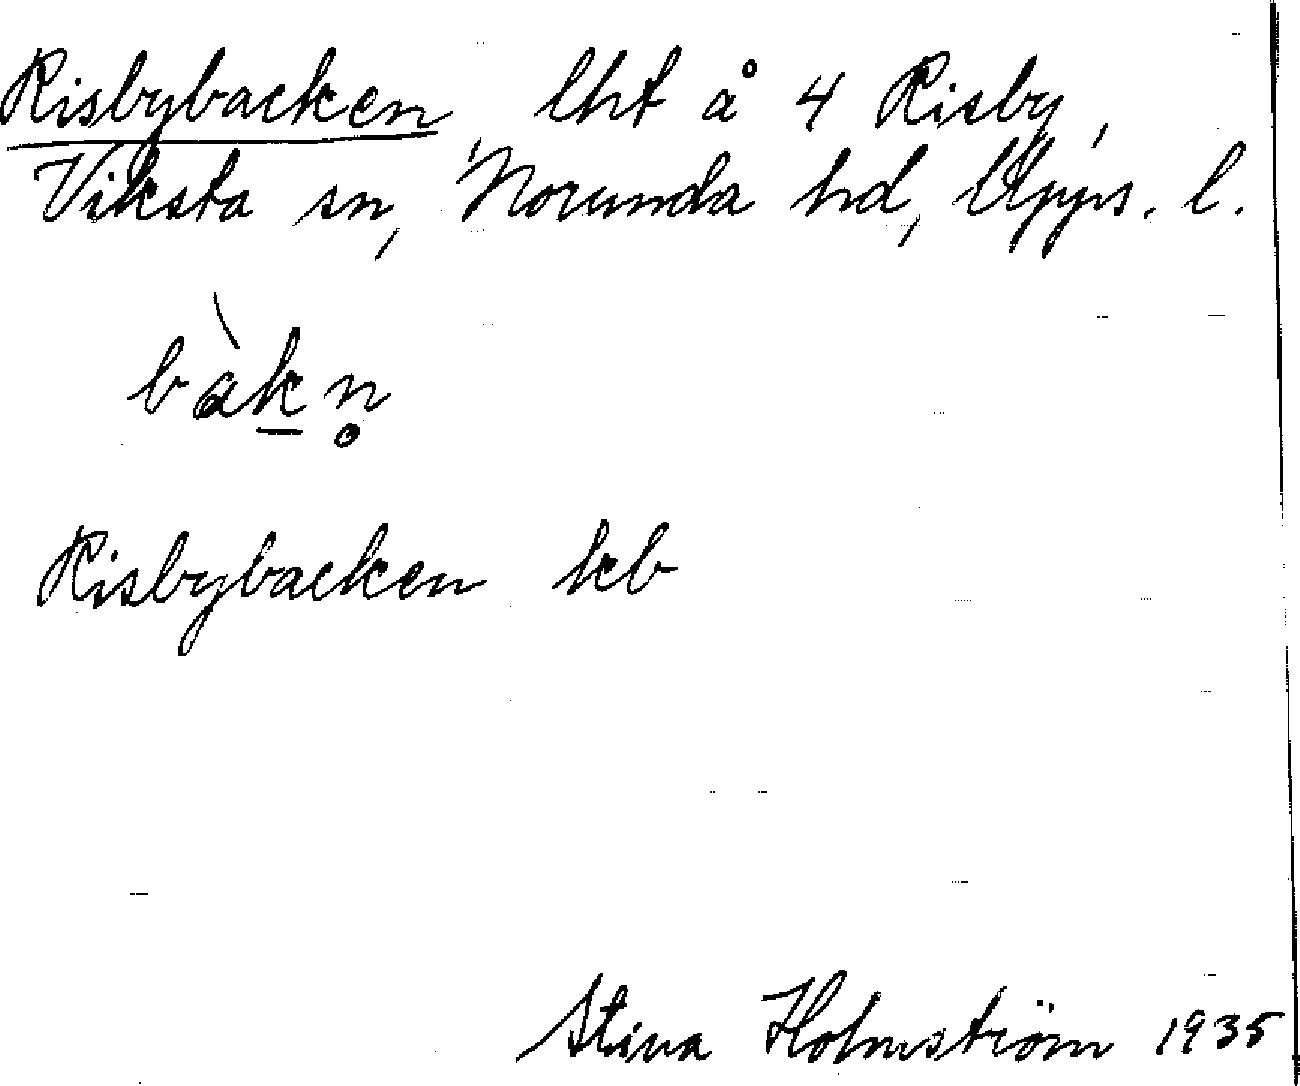 Risbybacken, lht å 4 Risby,
Viksta sn, Norunda hd, Upps. l.
bàk̲n̥
Risbybacken kb
Stina Holmström 1935